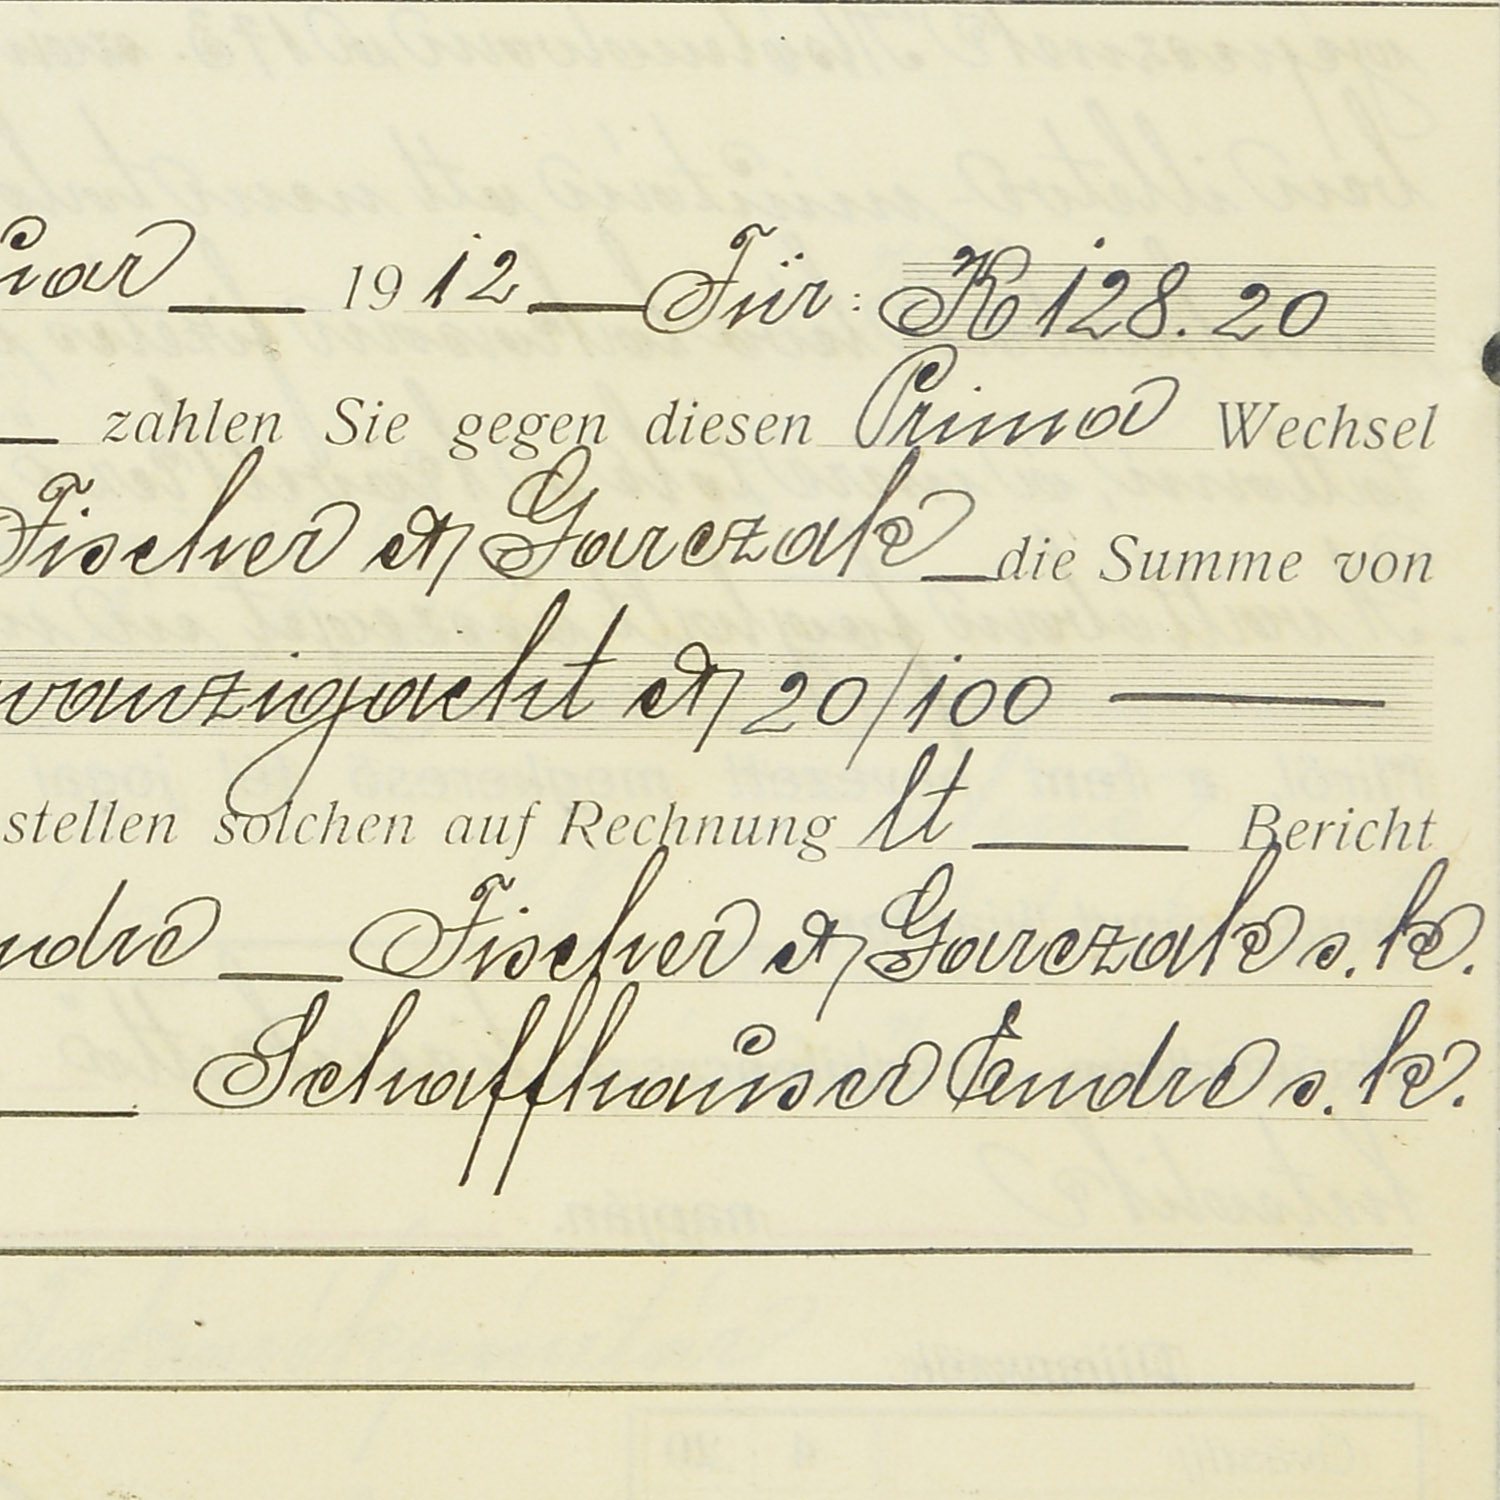 uar 1912 Für: K 128.20
zahlen Sie gegen diesen Prima Wechsel
Fischer et Garczak die Summe von
wanzigacht et 20/100
stellen solchen auf Rechnung lt Bericht
ndre Fischer et Garczak s. k.
Schaffhauser Endre s. k.